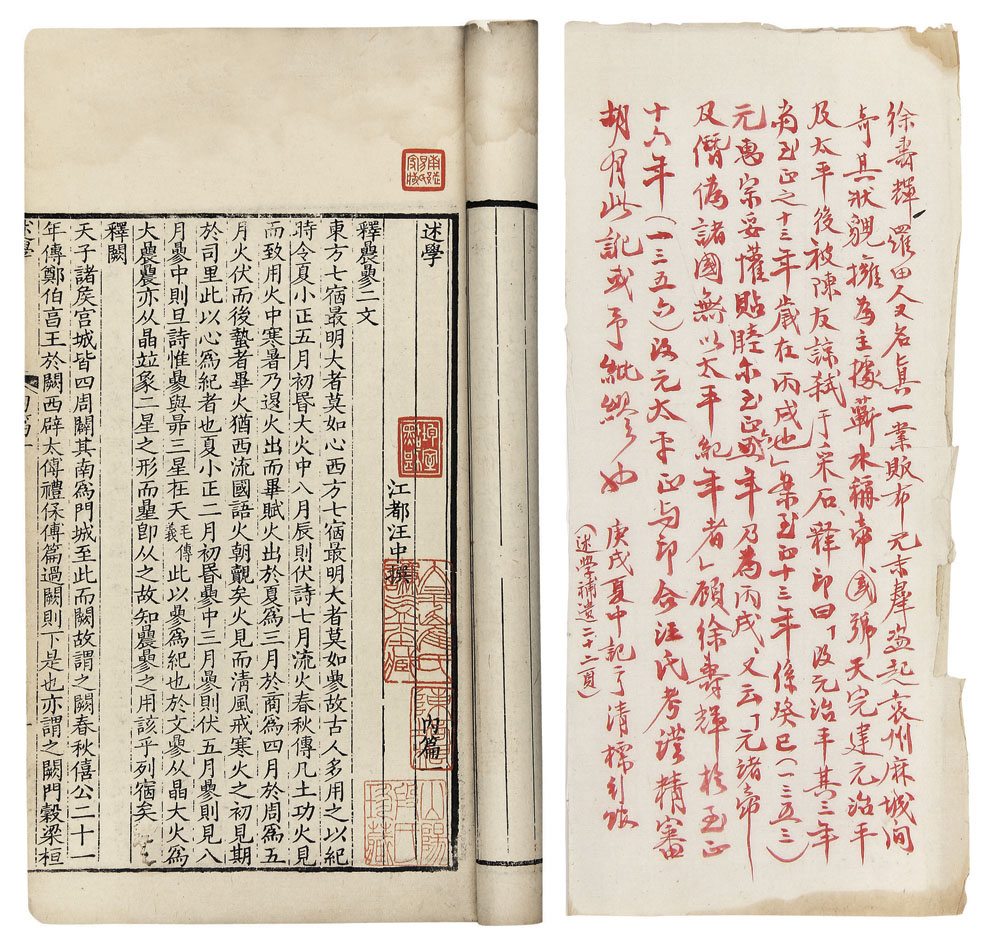 述學
江都汪中撰
內篇
釋曟曑二文
東方七宿最明大者莫如心西方七宿最明大者莫如曑故古人多用之以紀
時令夏小正五月初昬大火中八月辰則伏詩七月流火春秋傳凡土功火見
而致用火中寒暑乃退火出而畢賦火出於夏爲三月於商爲四月於周爲五
月火伏而後蟄者畢火猶西流國語火朝覿矣火見而淸風戒寒火之初見期
於司里此以心爲紀者也夏小正二月初昬曑中三月曑則伏五月曑則見八
月曑中則旦詩惟曑與昴三星在天毛傳義此以曑爲紀也於文曑从晶大火爲
大曟曟亦从晶竝象二星之形而壘卽从之故知曟曑之用該乎列宿矣
釋闕
天子諸侯宮城皆四周闢其南爲門城至此而闕故謂之闕春秋僖公二十一
年傳鄭伯亯王於闕西辟太傅禮保傅篇過闕則下是也亦謂之闕門榖梁桓
徐壽輝羅田人又名真一業販布元末羣盜起袁州麻城间
奇其狀貌擁為主據蘄水稱帝國號天完建元治平
及太平後被陳友諒弑于采石釋印曰「改元治平其三年
當至正之十三年歲在丙戌也」案至正十三年係癸巳(一三五三)
元惠宗妥懽貼睦尔至正六年乃為丙戌、又云「元諸帝
及僭偽諸國無以太平紀年者」顧徐壽輝於至正
十六年(一三五六)改元太平正与印合汪氏考證精審
胡有此記或予紕繆也
庚戌夏中記于清檽引
(述學補遺二十二頁)